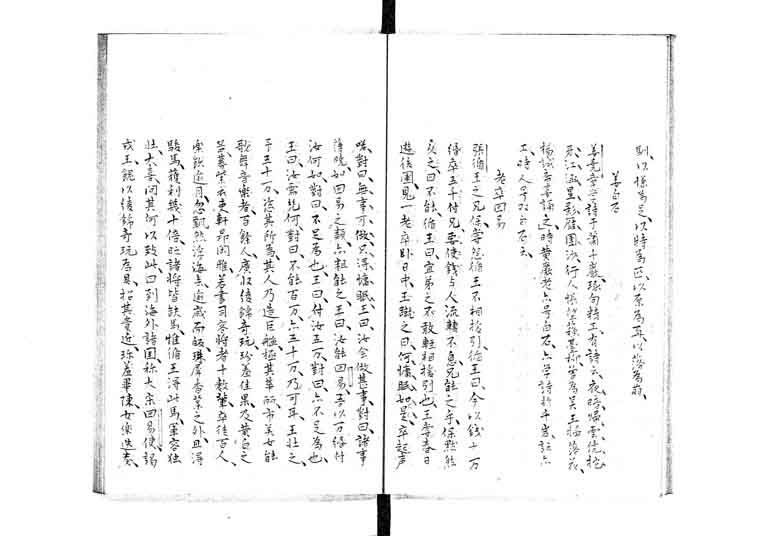 以時為匹、以
姜白石
姜堯章學詩于蕭千巖、琢句精工、有詩云、夜暗歸雲繞柁
牙、江涵星影鴈團沙、行人悵望蘇臺柳、曾為吳王掃落花、
楊誠齋喜誦之、時黃巖老亦号白石、亦學詩於千岩、詩亦
工、時人号双白石云、
老卒回易
張循王之兄保、嘗怨循王不相援引、循王曰、今以錢十万
緡卒五千付兄、要使錢与人流轉不息、兄能之乎、保默然
久之曰、不能、循王曰、宜弟之不敢軽相援引也、王嘗春日
遊後圃、見一老卒卧日中、王蹴之曰、何慵眠如是、卒起声
喏對曰、無事可做、只得慵眠、王曰、汝会做甚事、對曰、諸事
薄曉、如回易之類、亦粗能之、王曰、汝能回易、吾以万緡付
汝何如、對曰、不足為也、王曰、付汝五万、對曰、亦不足為也、
王曰、汝需幾何、對曰、不能百万、亦五十万乃可耳、王壮之、
予五十万、恣其所為、其人乃造巨艦、極其華麗、市美女能
歌舞音樂者、百餘人、廣收綾錦奇玩、珍羞佳果及黄白之
器、募紫衣吏軒昂閑雅、若書司客將者十数輩、卒徒百人、
樂飲逾月、忽飄然浮海去、逾歳而皈、珠犀香藥之外、且得
駿馬、獲利幾十倍、時諸將皆缺馬、惟循王得此馬、軍容独
壮、大喜、問其何以致此、曰、到海外諸国、称大宋回易使、謁
戎王、餽以綾錦奇玩、為具、招其貴近、珍羞畢陳、女樂迭奏、